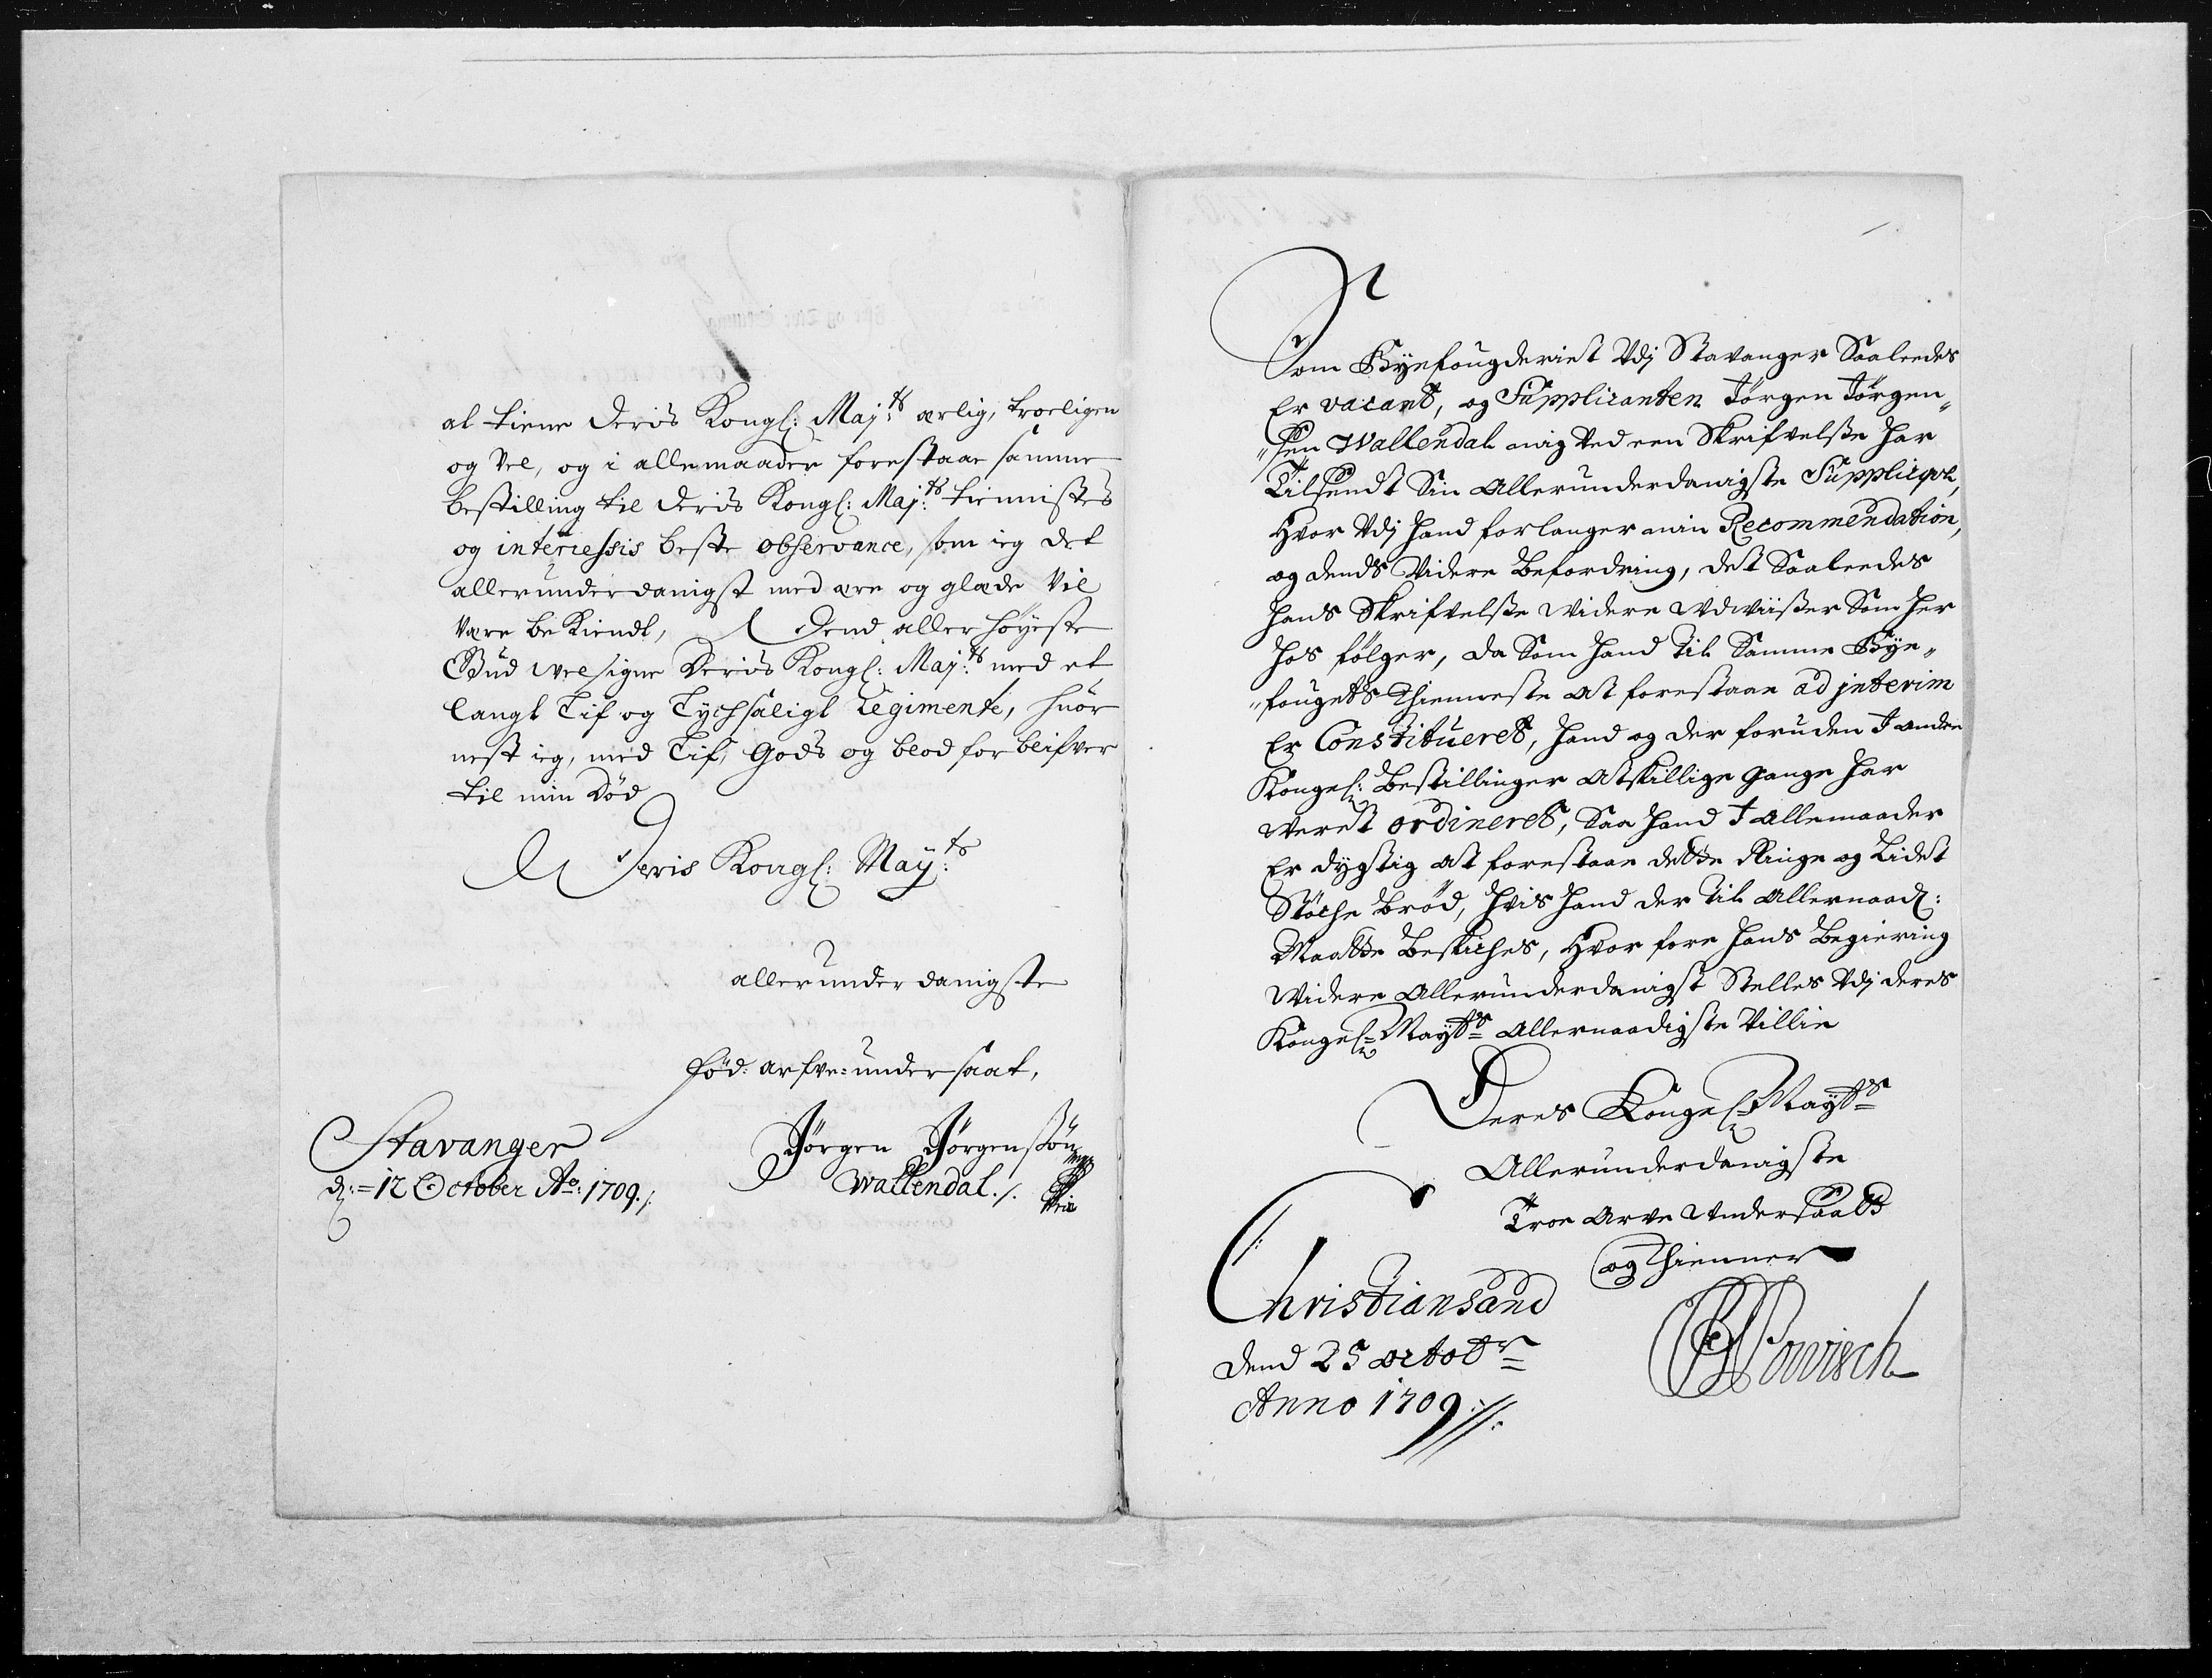 at tiene Deris Kongl: Maj:ts ærlig, troeligen
og vel, og i allemaader forestaae samme
bestilling til Deris Kongl: Maj:ts tiennistes
og interessis beste observance, som ieg det
allerunderdanigst med ære og glæde vil
være be kiendt, Dend aller høyeste
Gud velsigne Deris Kongl: Maj:ts med et
langt Lif og Lychsaligt Regimente, huor
nest ieg, med Lif, Gods og blod for blifver
til min Død
Deris Kongl: May:ts
allerunderdanigste
fød: arfve=undersaat,
Stavanger
d:=12 October Ao: 1709./.
Jørgen Jørgensøn
Wallendal./.
Som Byefougderiet Udj Stavanger Saaleedes
Er vacant, og Supplicanten Jørgen Jørgen„
„sen Wallendal mig Ved een Skrifvelsse har
Tilsendt Sin Allerunderdanigste Supplique,
Hvor Udj hand forlanger min Recommendation,
og dends Videre Befordring, det Saaleedes
hans Skrifvelsse videre Udviisser Som her
hos følger, da Som hand Til Samme Bye„
„fougets Thienneste at forestaae ad jnterim
Er Constitueret, hand og der foruden J andre
Kongel: Bestillinger Atskillige gange har
veret ordineret, Saa hand J allemaader
Er dygtig at forestaae dette Ringe og Lidet
Støche brød, hvis hand der til Allernaad:
Maatte Beskiches, Hvor fore hans Begiering
Videre Allerunderdanigst Stelles Udj deres
Kongel: Maytts Allernaadigste Villie
Deres Kongel: Maytts
Allerunderdanigste
Troe Arve Undersaatt
og Thienner
Christiansand
dend 25 octobr
Anno 1709